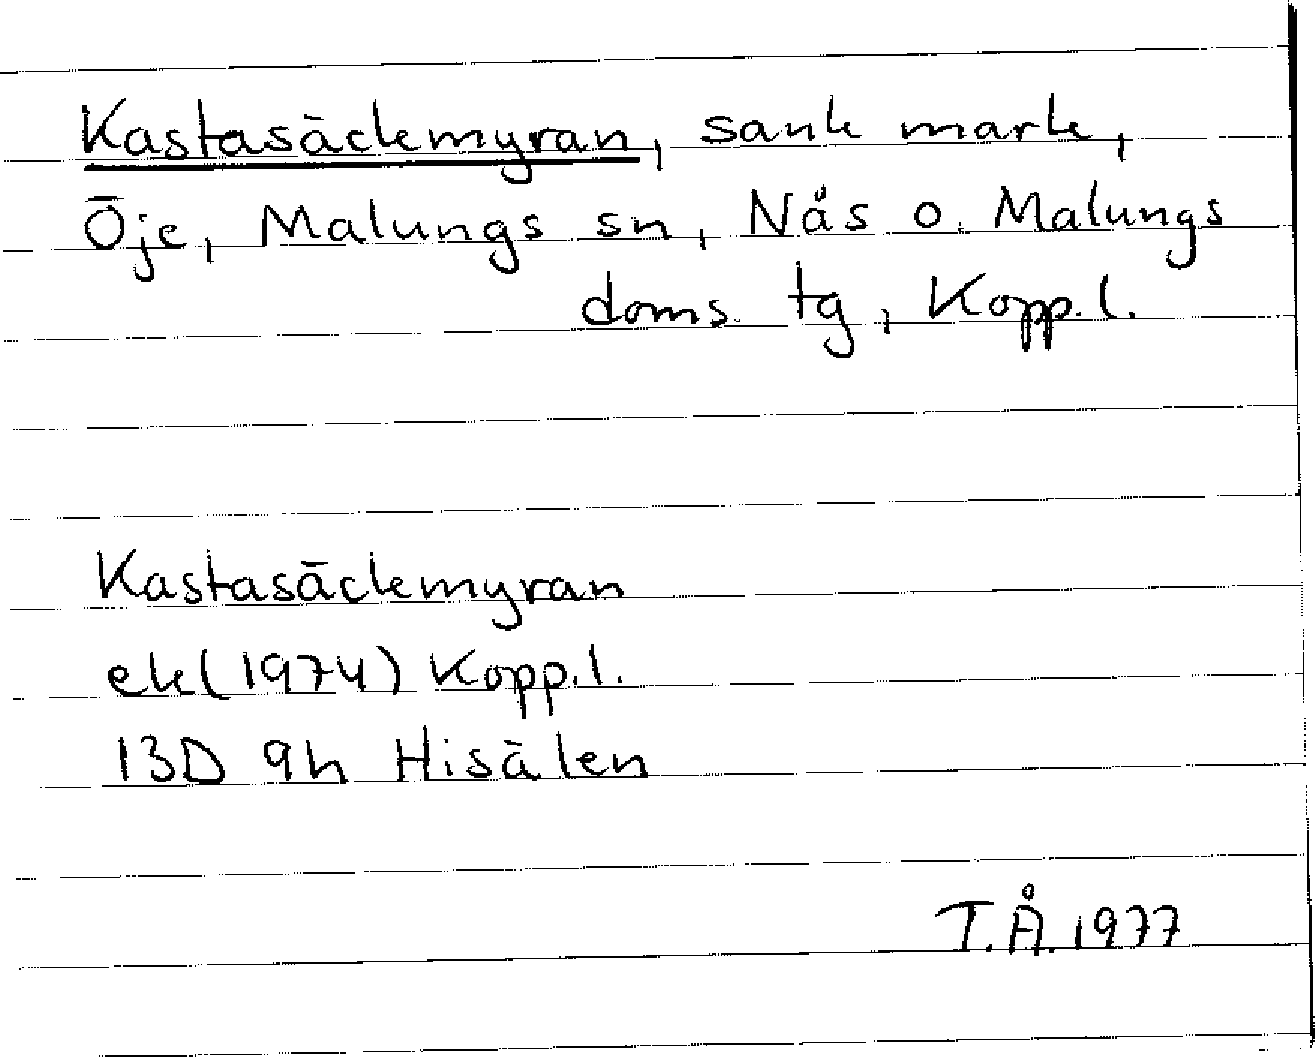 Kastasäckemyran, sank mark,
Öje, Malungs sn, Nås o. Malungs
doms. tg, Kopp. l.
Kastasäckemyran
ek (1974) Kopp. l.
13D 9h Hisälen
T.Å. 1977